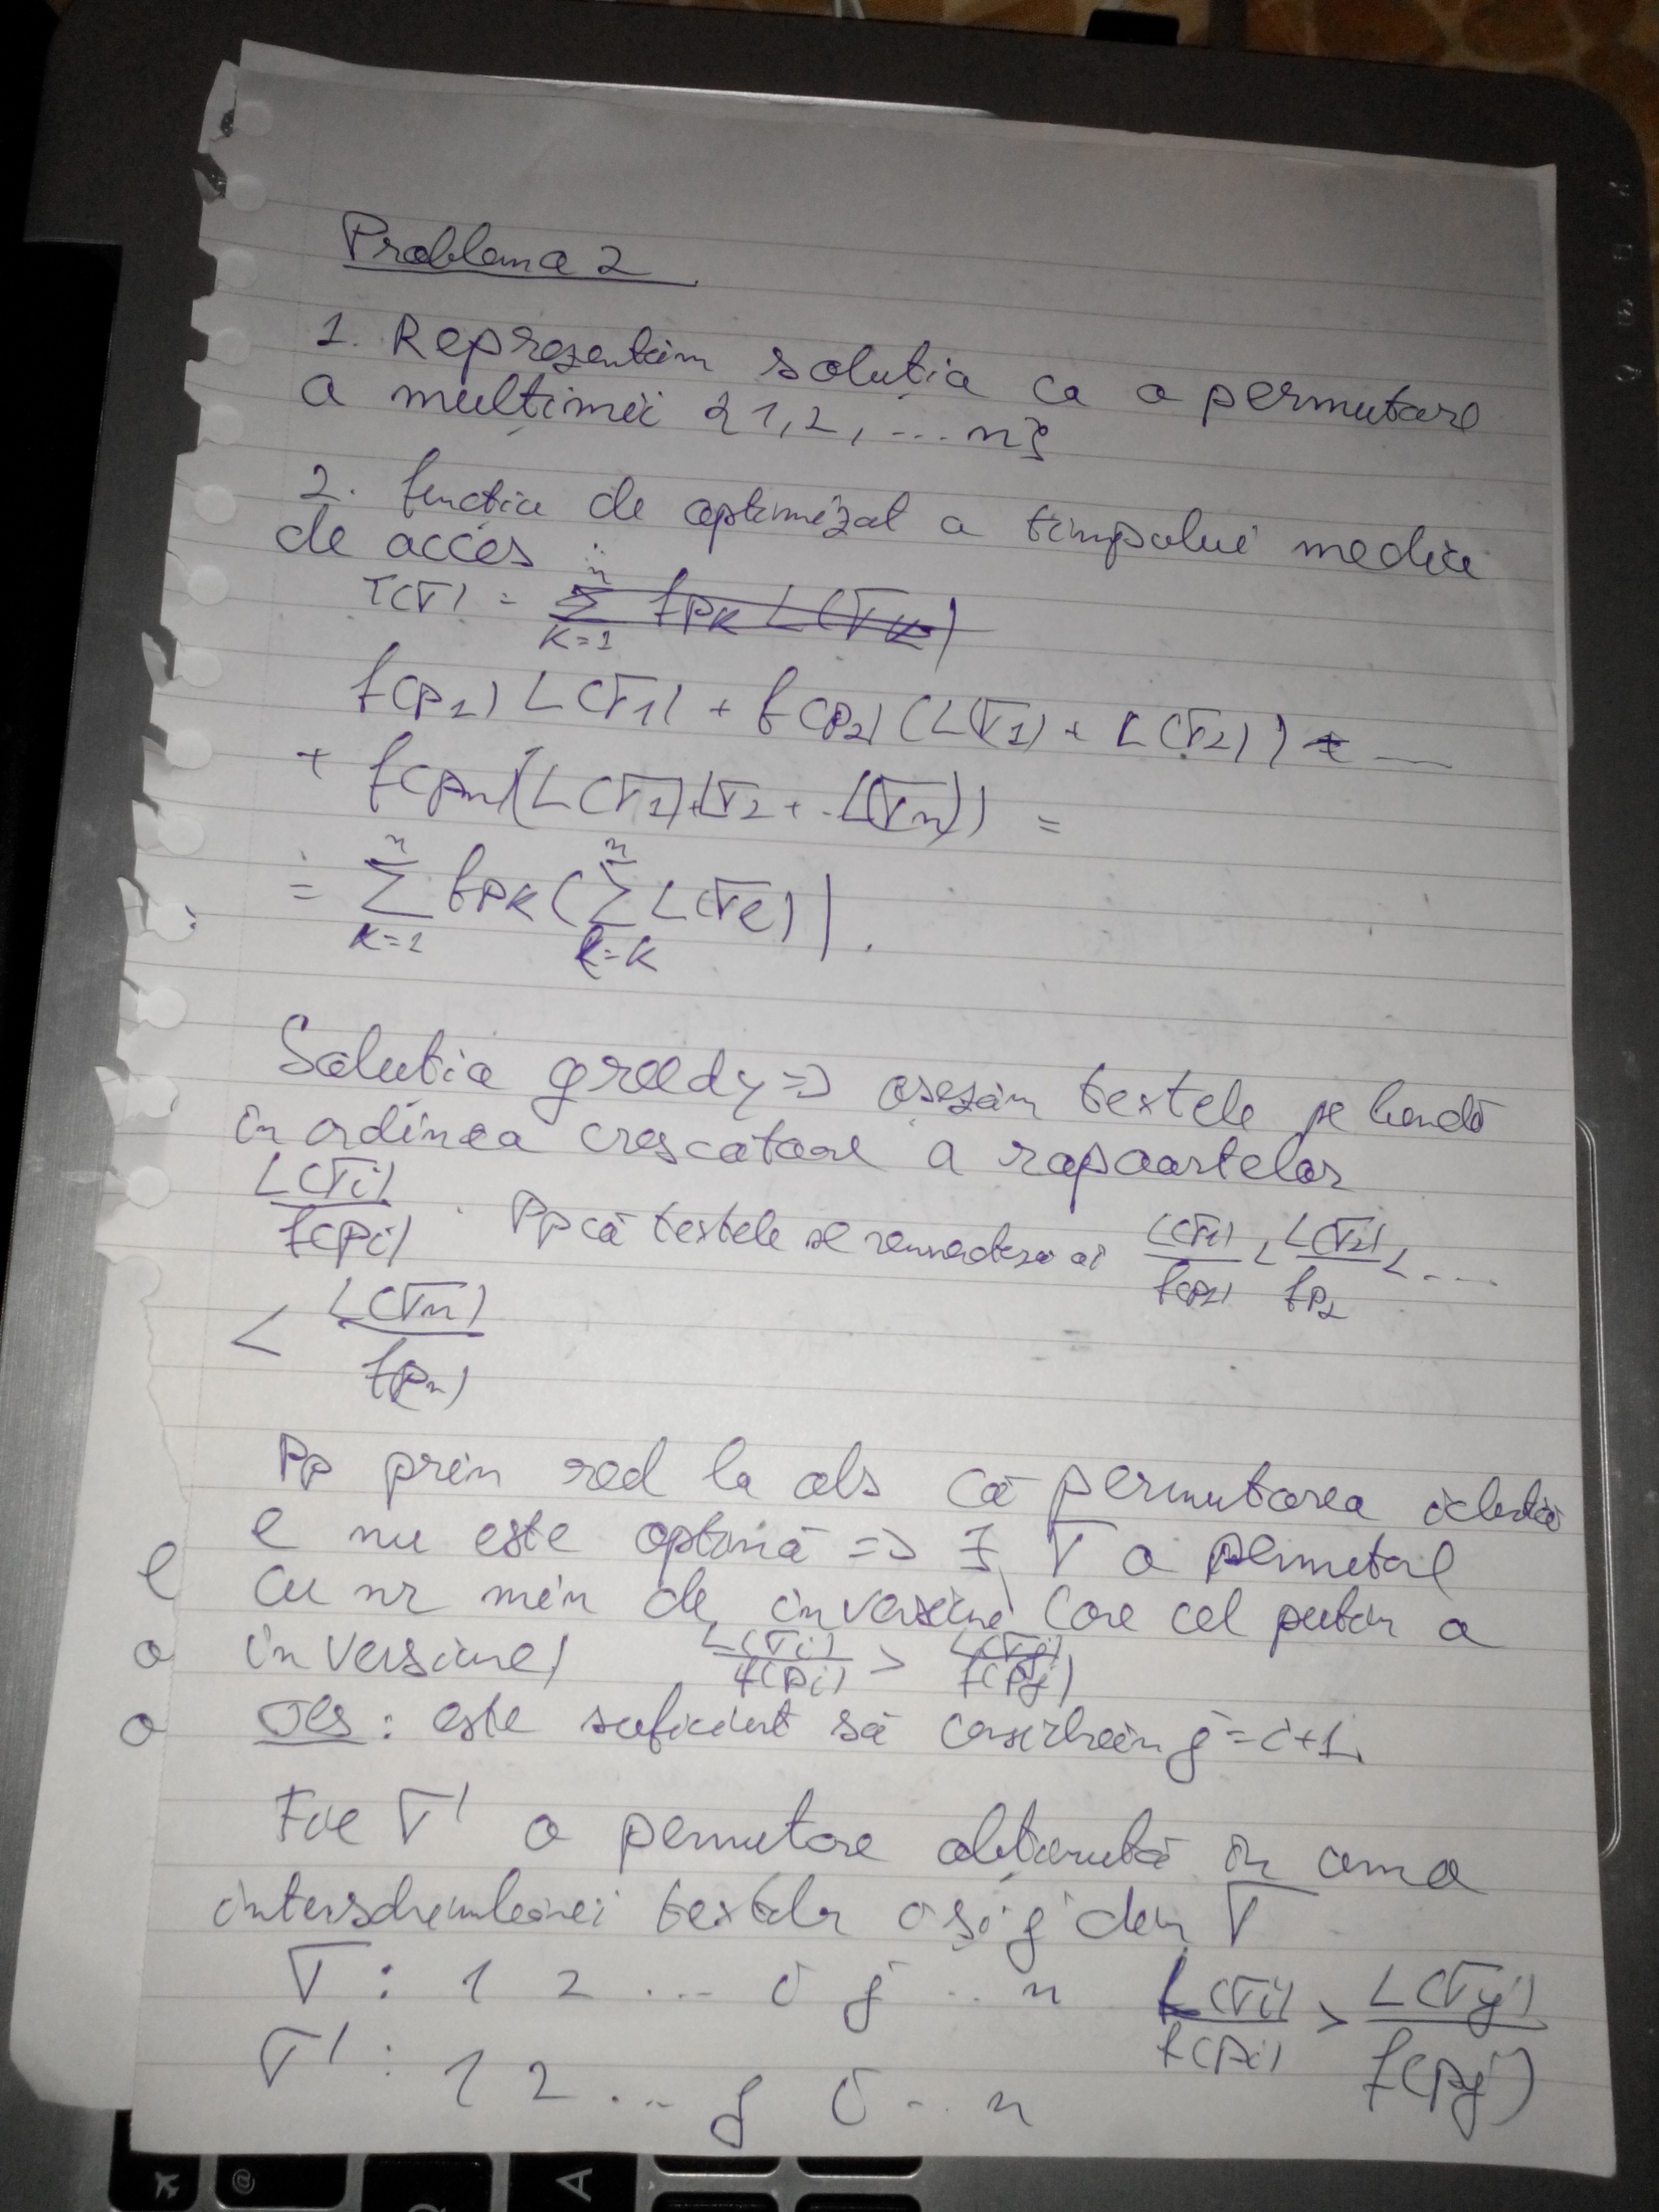 Problema 2
1. Reprezentăm soluția ca o permutare
a mulțimii {1, 2, ... n}
2. funcția de optimizat a timpului mediu
de acces :
T(σ) = Σ_{k=1}^{n} f_{pk} L(σ_k)
f(p_1) L(σ_1) + f(p_2) (L(σ_1) + L(σ_2)) + ...
+ f(p_n) (L(σ_1) + L σ_2 + .. L(σ_n)) =
= Σ_{k=1}^{n} f_{pk} ( Σ_{l=k}^{n} L(σ_l) ).
Soluția greedy => așezăm textele pe bandă
în ordinea crescătoare a rapoartelor
L(σ_i) / f(p_i) . Pp că textele se renumerotează aî L(σ_1) / f(p_1) < L(σ_2) / f p_2 < ....
< L(σ_n) / f(p_n)
Pp prin red la abs că permutarea identică
e nu este optimă => ∃ σ o permutare
cu nr min de inversiuni (are cel puțin o
inversiune) L(σ_i) / f(p_i) > L(σ_j) / f(p_j)
Obs : este suficient să considerăm j = i+1.
Fie σ' o permutare obținută în urma
interschimbării textelor i și j din σ
σ : 1 2 ... i j .. n L(σ_i) / f(p_i) > L(σ_j) / f(p_j)
σ' : 1 2 ... j i .. n
e
o
o